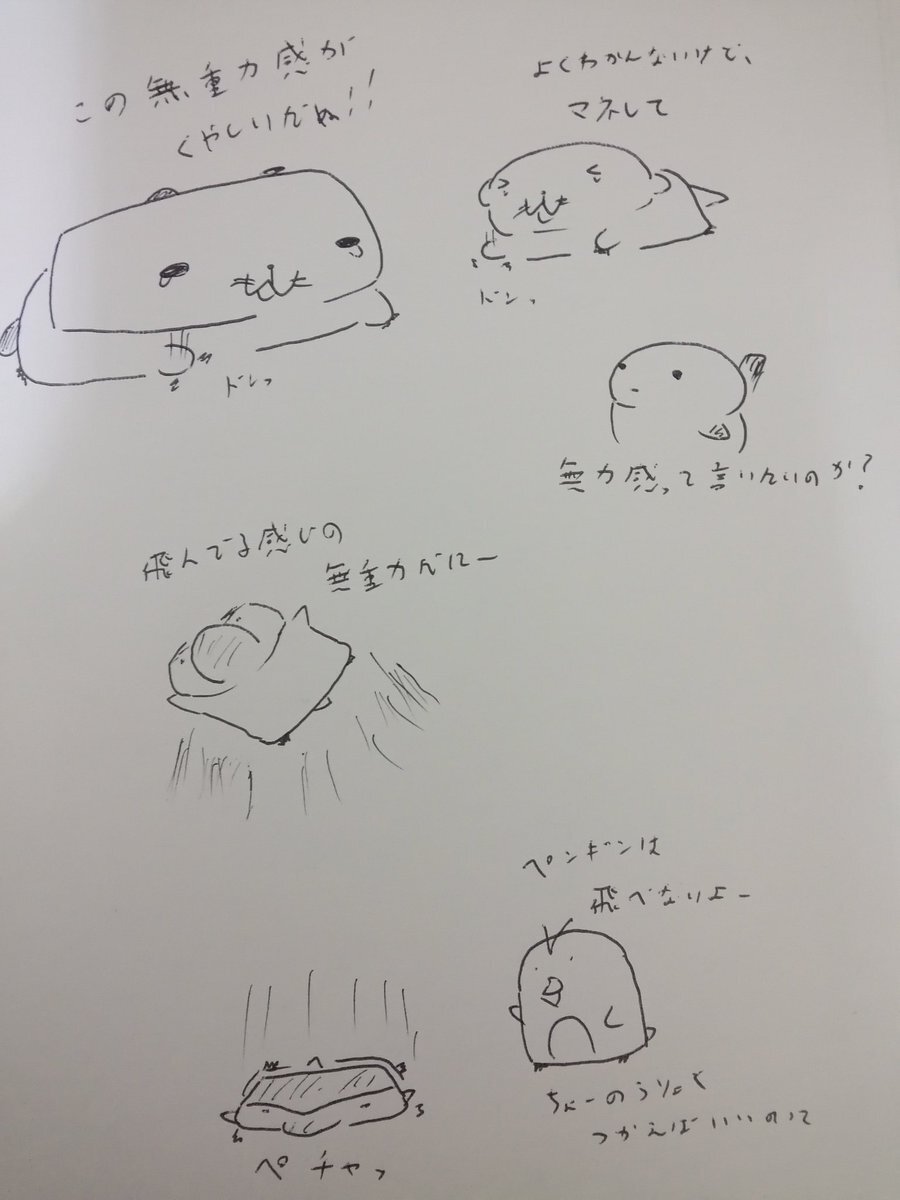 この無重力感が
くやしいんだぬ!!
ドンっ
よくわかんないけど、
マネして
ドンっ
無力感って言いたいのか?
飛んでる感じの
無重力だにー
ペンギンは
飛べないよー
ちょーのうりょく
つかえばいいのに
ペチャっ